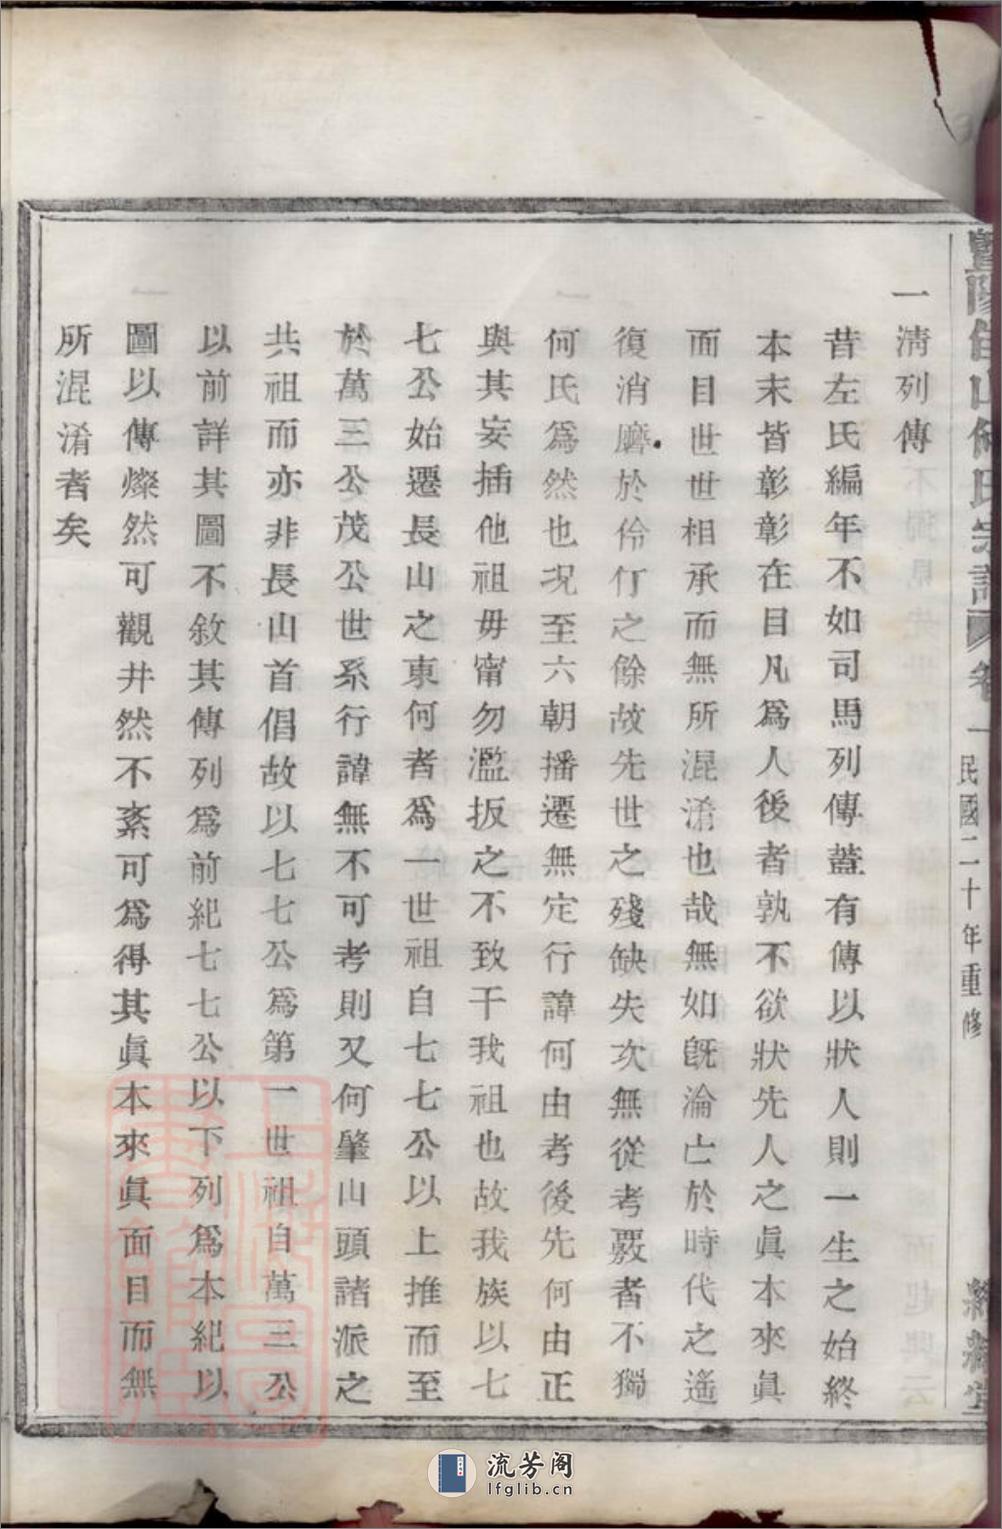 一清列傳
昔左氏編年不如司馬列傳蓋有傳以狀人則一生之始終
本末皆彰彰在目凡爲人後者孰不欲狀先人之眞本來眞
面目世世相承而無所混淆也哉無如旣淪亡於時代之遙
復消磨於伶仃之餘故先世之殘缺失次無從考覈者不獨
何氏爲然也况至六朝播遷無定行諱何由考後先何由正
與其妄插他祖毋甯勿濫扳之不致干我祖也故我族以七
七公始遷長山之東何者爲一世祖自七七公以上推而至
於萬三公茂公世系行諱無不可考則又何肇山頭諸派之
共祖而亦非長山首倡故以七七公爲第一世祖自萬三公
以前詳其圖不敘其傳列爲前紀七七公以下列爲本紀以
圖以傳燦然可觀井然不紊可爲得其眞本來眞面目而無
所混淆者矣
民國二十年重修
流芳阁
lfglib.cn